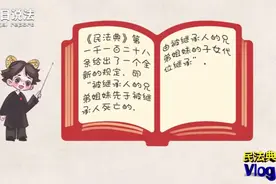 目说法
《民法典》第
一千一百二十八
条给出了一个全
新的规定，即
“被继承人的兄
弟姐妹先于被继
承人死亡的，
由被继承人的兄
弟姐妹的子女代
位继承”。
民法典
Vlog